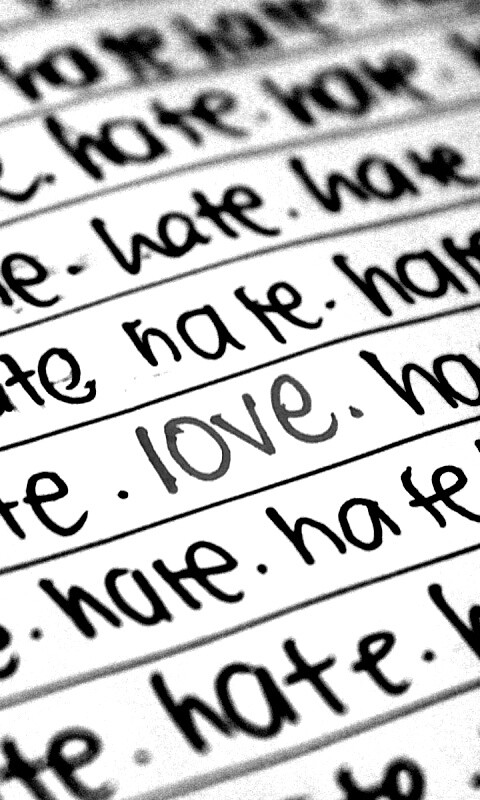 hate hate
hate. hate.
e. hate. hate
ate hate. hate
te. love. ha
e. hate. hate
te. hate. h